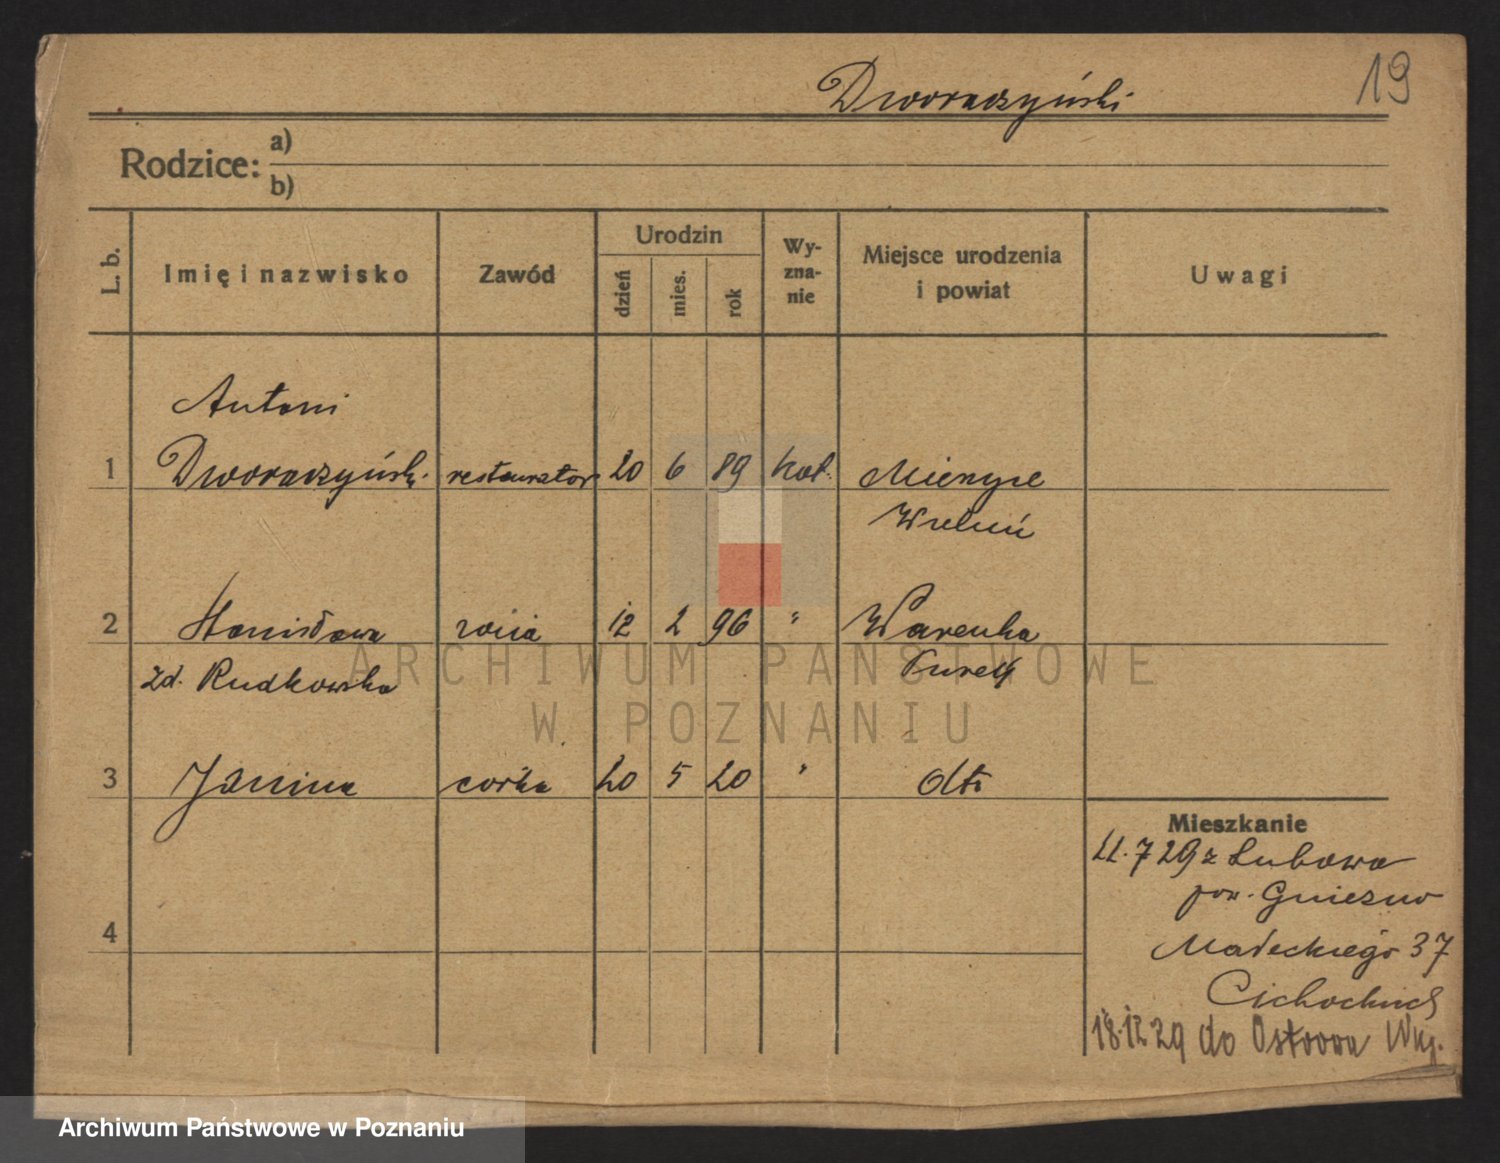 Dworaczyński 19
Rodzice: a)
b)
L. b. Imię i nazwisko Zawód Urodzin dzień mies. rok Wy-zna-nie Miejsce urodzenia i powiat Uwagi
Antoni
1 Dworaczyński restaurator 20 6 89 kat.
Wieluń
2 Stanisława 12 2 96 " Warenka
zd. Rudkowska Turek
3 Janina córka 20 5 20 " dto
Mieszkanie
11.7 29 z Łubowa
pow. Gniezno
4
Małeckiego 37
Cichockich
18.12 29 do Ostrowa Wkp.
ARCHIWUM PAŃSTWOWE
W POZNANIU
Archiwum Państwowe w Poznaniu